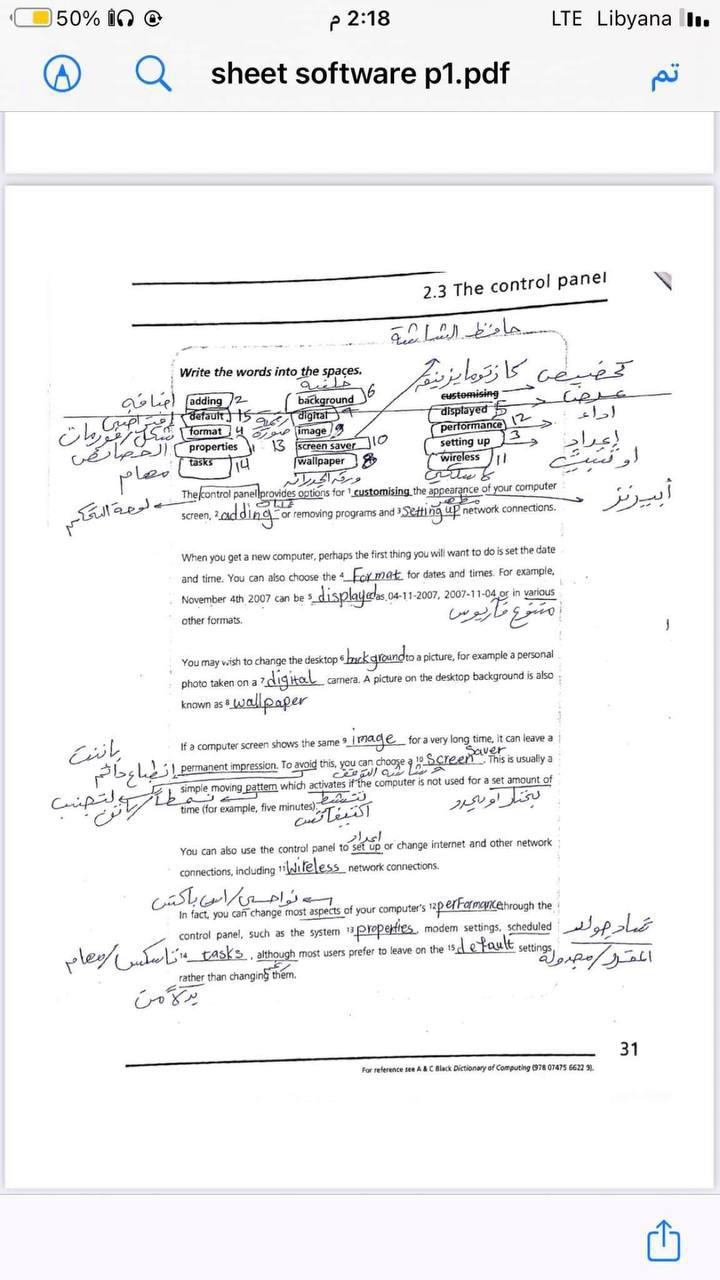 50%
2:18 م
LTE Libyana
sheet software p1.pdf
تم
2.3 The control panel
حافظ الشاشة
Write the words into the spaces.
كازتومايزينق تخصيص
خلفية
اضافه adding 2 background 6 customising
default 15 digital displayed 5
format 4 صورة image 9 performance 12 اداء
الخصائص properties 13 screen saver 10 setting up 3 إعداد
مهام tasks 14 wallpaper 8 wireless 11 او تثبيت
لوحة التحكم
The control panel provides options for 1 customising the appearance of your computer
screen, 2 adding or removing programs and 3 setting up network connections.
When you get a new computer, perhaps the first thing you will want to do is set the date
and time. You can also choose the 4 Format for dates and times. For example,
November 4th 2007 can be 5 displayed as 04-11-2007, 2007-11-04 or in various
other formats.
متنوع
You may wish to change the desktop 6 background to a picture, for example a personal
photo taken on a 7 digital camera. A picture on the desktop background is also
known as 8 wallpaper
If a computer screen shows the same 9 image for a very long time, it can leave a
إنطباع دائم permanent impression. To avoid this, you can choose a 10 Screen Saver. This is usually a
simple moving pattern which activates if the computer is not used for a set amount of
time (for example, five minutes).
اعداد
You can also use the control panel to set up or change internet and other network
connections, including 11 Wireless network connections.
In fact, you can change most aspects of your computer's 12 performance through the
control panel, such as the system 13 properties, modem settings, scheduled
تاسكس/مهام 14 tasks, although most users prefer to leave on the 15 default settings
المقرر/مجدولة
rather than changing them.
بدلاً من
31
For reference see A & C Black Dictionary of Computing (978 07475 6622 9).